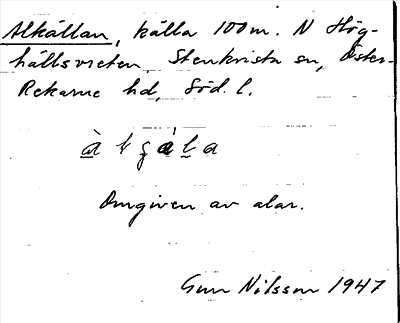 Alkällan, källa 100 m. N Hög-
hällsvreten Stenkvista sn, Öster-
Rekarne hd, Söd. l.
Omgiven av alar.
Gun Nilsson 1947